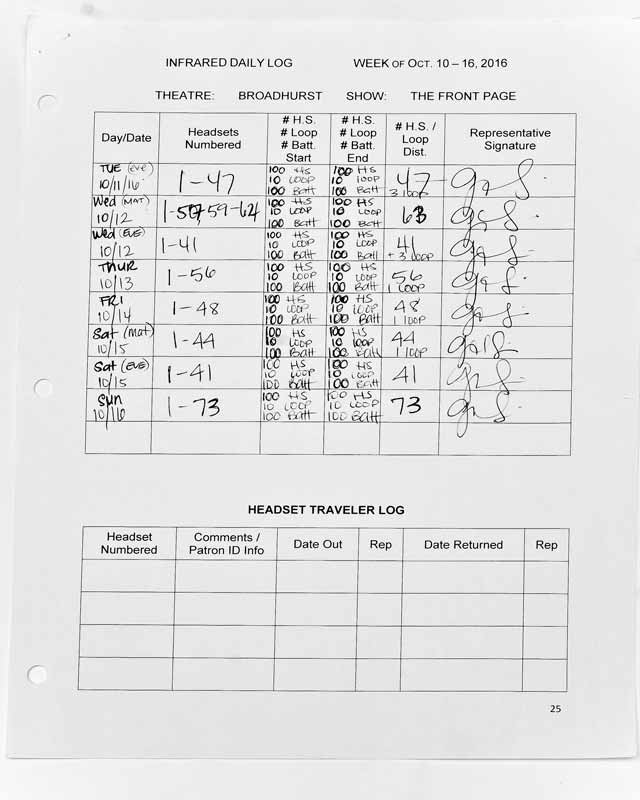 INFRARED DAILY LOG WEEK OF OCT. 10 – 16, 2016
THEATRE: BROADHURST SHOW: THE FRONT PAGE
Day/Date
Headsets
Numbered
# H.S.
# Loop
# Batt.
Start
# H.S.
# Loop
# Batt.
End
# H.S. /
Loop
Dist.
Representative
Signature
TUE (EVE)
10/11/16
1-47
100 HS
10 LOOP
100 Batt
100 HS
10 LOOP
100 Batt
47
3 LOOP
Wed (MAT)
10/12
59-64
100 HS
10 LOOP
100 Batt
100 HS
10 LOOP
100 Batt
63
Wed (EVE)
10/12
1-41
100 HS
10 LOOP
100 Batt
100 HS
10 LOOP
100 Batt
41
+ 3 LOOP
THUR
10/13
1-56
100 HS
10 LOOP
100 Batt
100 HS
10 LOOP
100 Batt
56
1 LOOP
FRI
10/14
1-48
100 HS
10 LOOP
100 Batt
100 HS
10 LOOP
100 Batt
48
1 LOOP
Sat (Mat)
10/15
1-44
100 HS
10 LOOP
100 Batt
100 HS
10 LOOP
100 Batt
44
1 LOOP
Sat (EVE)
10/15
1-41
100 HS
10 LOOP
100 Batt
100 HS
10 LOOP
100 Batt
41
Sun
10/16
1-73
100 HS
10 LOOP
100 Batt
100 HS
10 LOOP
100 Batt
73
HEADSET TRAVELER LOG
Headset
Numbered
Comments /
Patron ID Info
Date Out
Rep
Date Returned
Rep
25